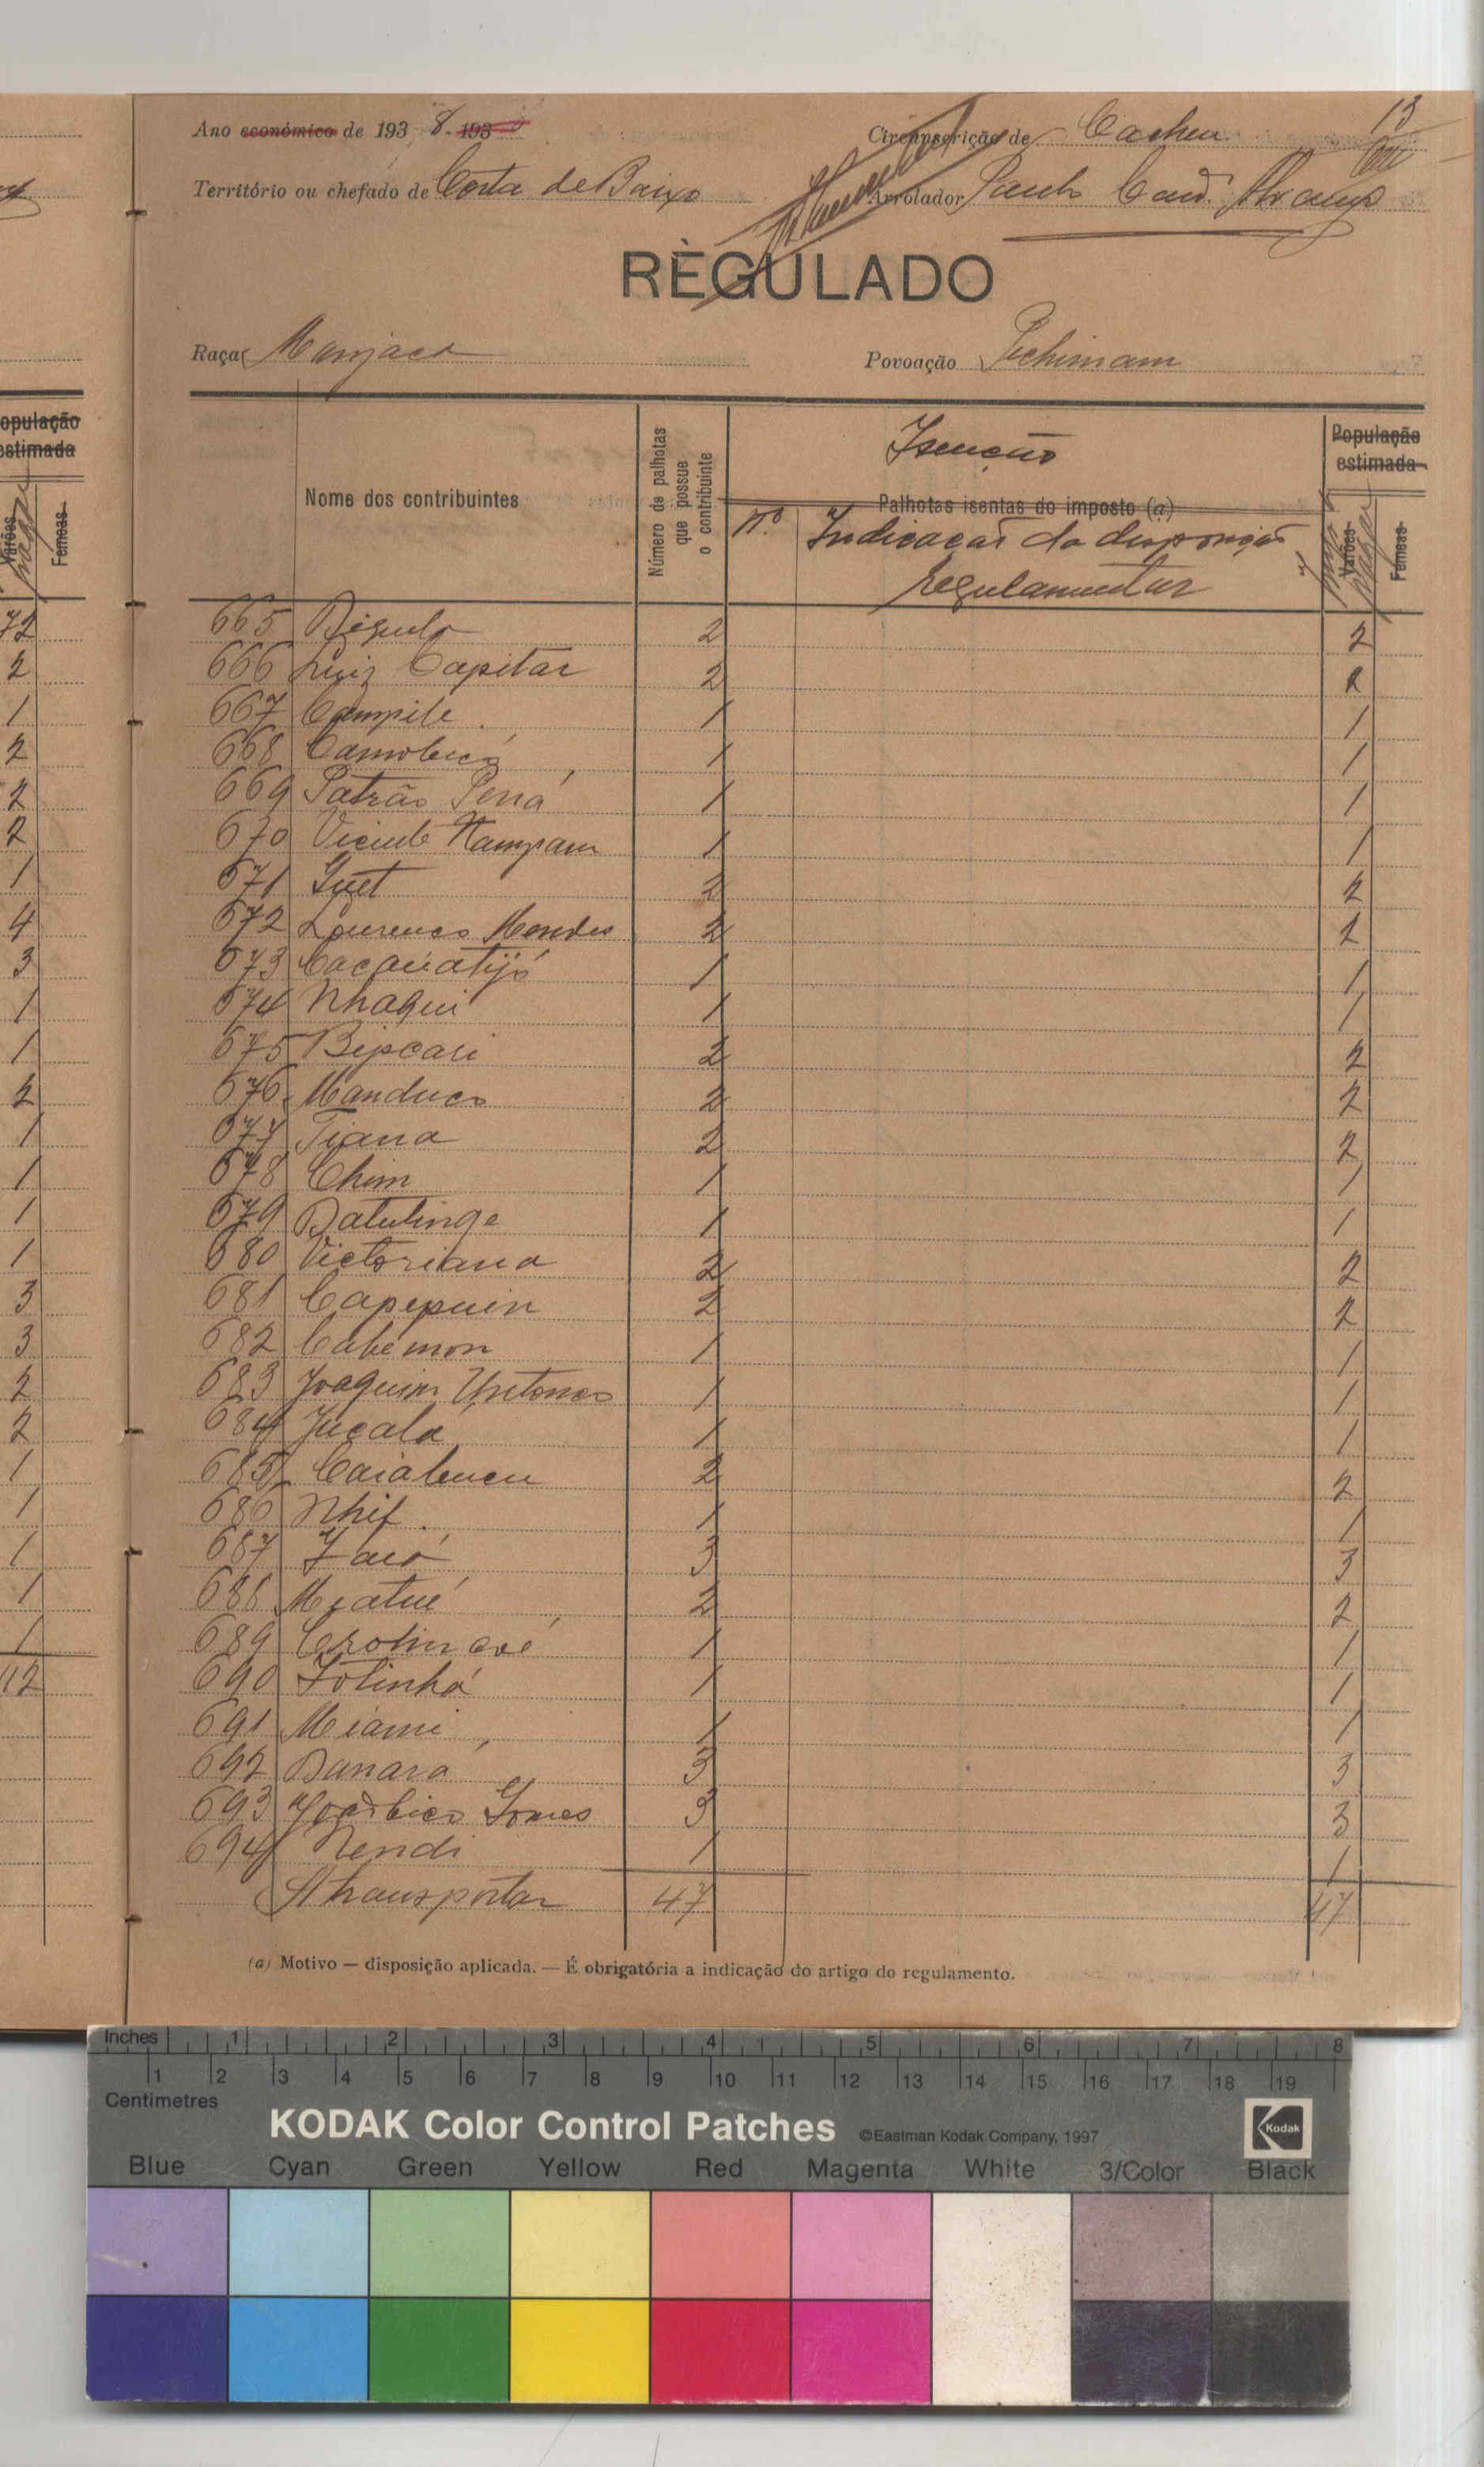 13
Ano económico de 1938-193
Circunscrição de Cacheu
Território ou chefado de Costa de Baixo
Arrolador Paulo
REGULADO
Raça Manjaca
Povoação Pechimam
População estimada
Varões
Femeas
Nome dos contribuintes
Número de palhotas que possue o contribuinte
Isenção
Palhotas isentas do imposto (a)
N.º Indicação da disposição regulamentar
População estimada
Varões
Femeas
72
2
1
2
2
2
1
4
3
1
1
2
1
1
1
1
3
3
2
2
1
1
1
1
1
112
665 2 2
666 Luiz Capitar 2 2
667 Campile 1 1
668 1 1
669 Patrão Pená 1 1
670 Vicente Nampam 1 1
671 Guet 2 2
672 Lourenco Mendes 2 2
673 1 1
674 Nhaqui 1 1
675 Bipcari 2 2
676 Manduco 2 2
677 Tiana 2 2
678 Chim 1 1
679 Datulinge 1 1
680 Victoriana 2 2
681 Capepuin 2 2
682 Cahemon 1 1
683 Joaquim Antonio 1 1
684 Jucalá 1 1
685 2 2
686 Nhif 1 1
687 3 3
688 2 2
689 1 1
690 1 1
691 Miami 1 1
692 Danará 3 3
693 Gomes 3 3
694 Nendi 1 1
A transportar 47 47
(a) Motivo — disposição aplicada. — É obrigatória a indicação do artigo do regulamento.
Inches 1 2 3 4 5 6 7 8
1 2 3 4 5 6 7 8 9 10 11 12 13 14 15 16 17 18 19
Centimetres
KODAK Color Control Patches ©Eastman Kodak Company, 1997 Kodak
Blue Cyan Green Yellow Red Magenta White 3/Color Black